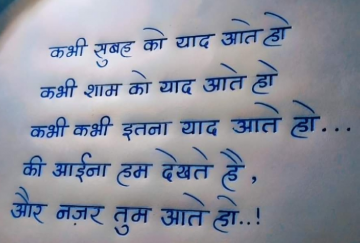 कभी सुबह को याद आते हो
कभी शाम को याद आते हो
कभी कभी इतना याद आते हो...
की आईना हम देखते है,
और नज़र तुम आते हो..!